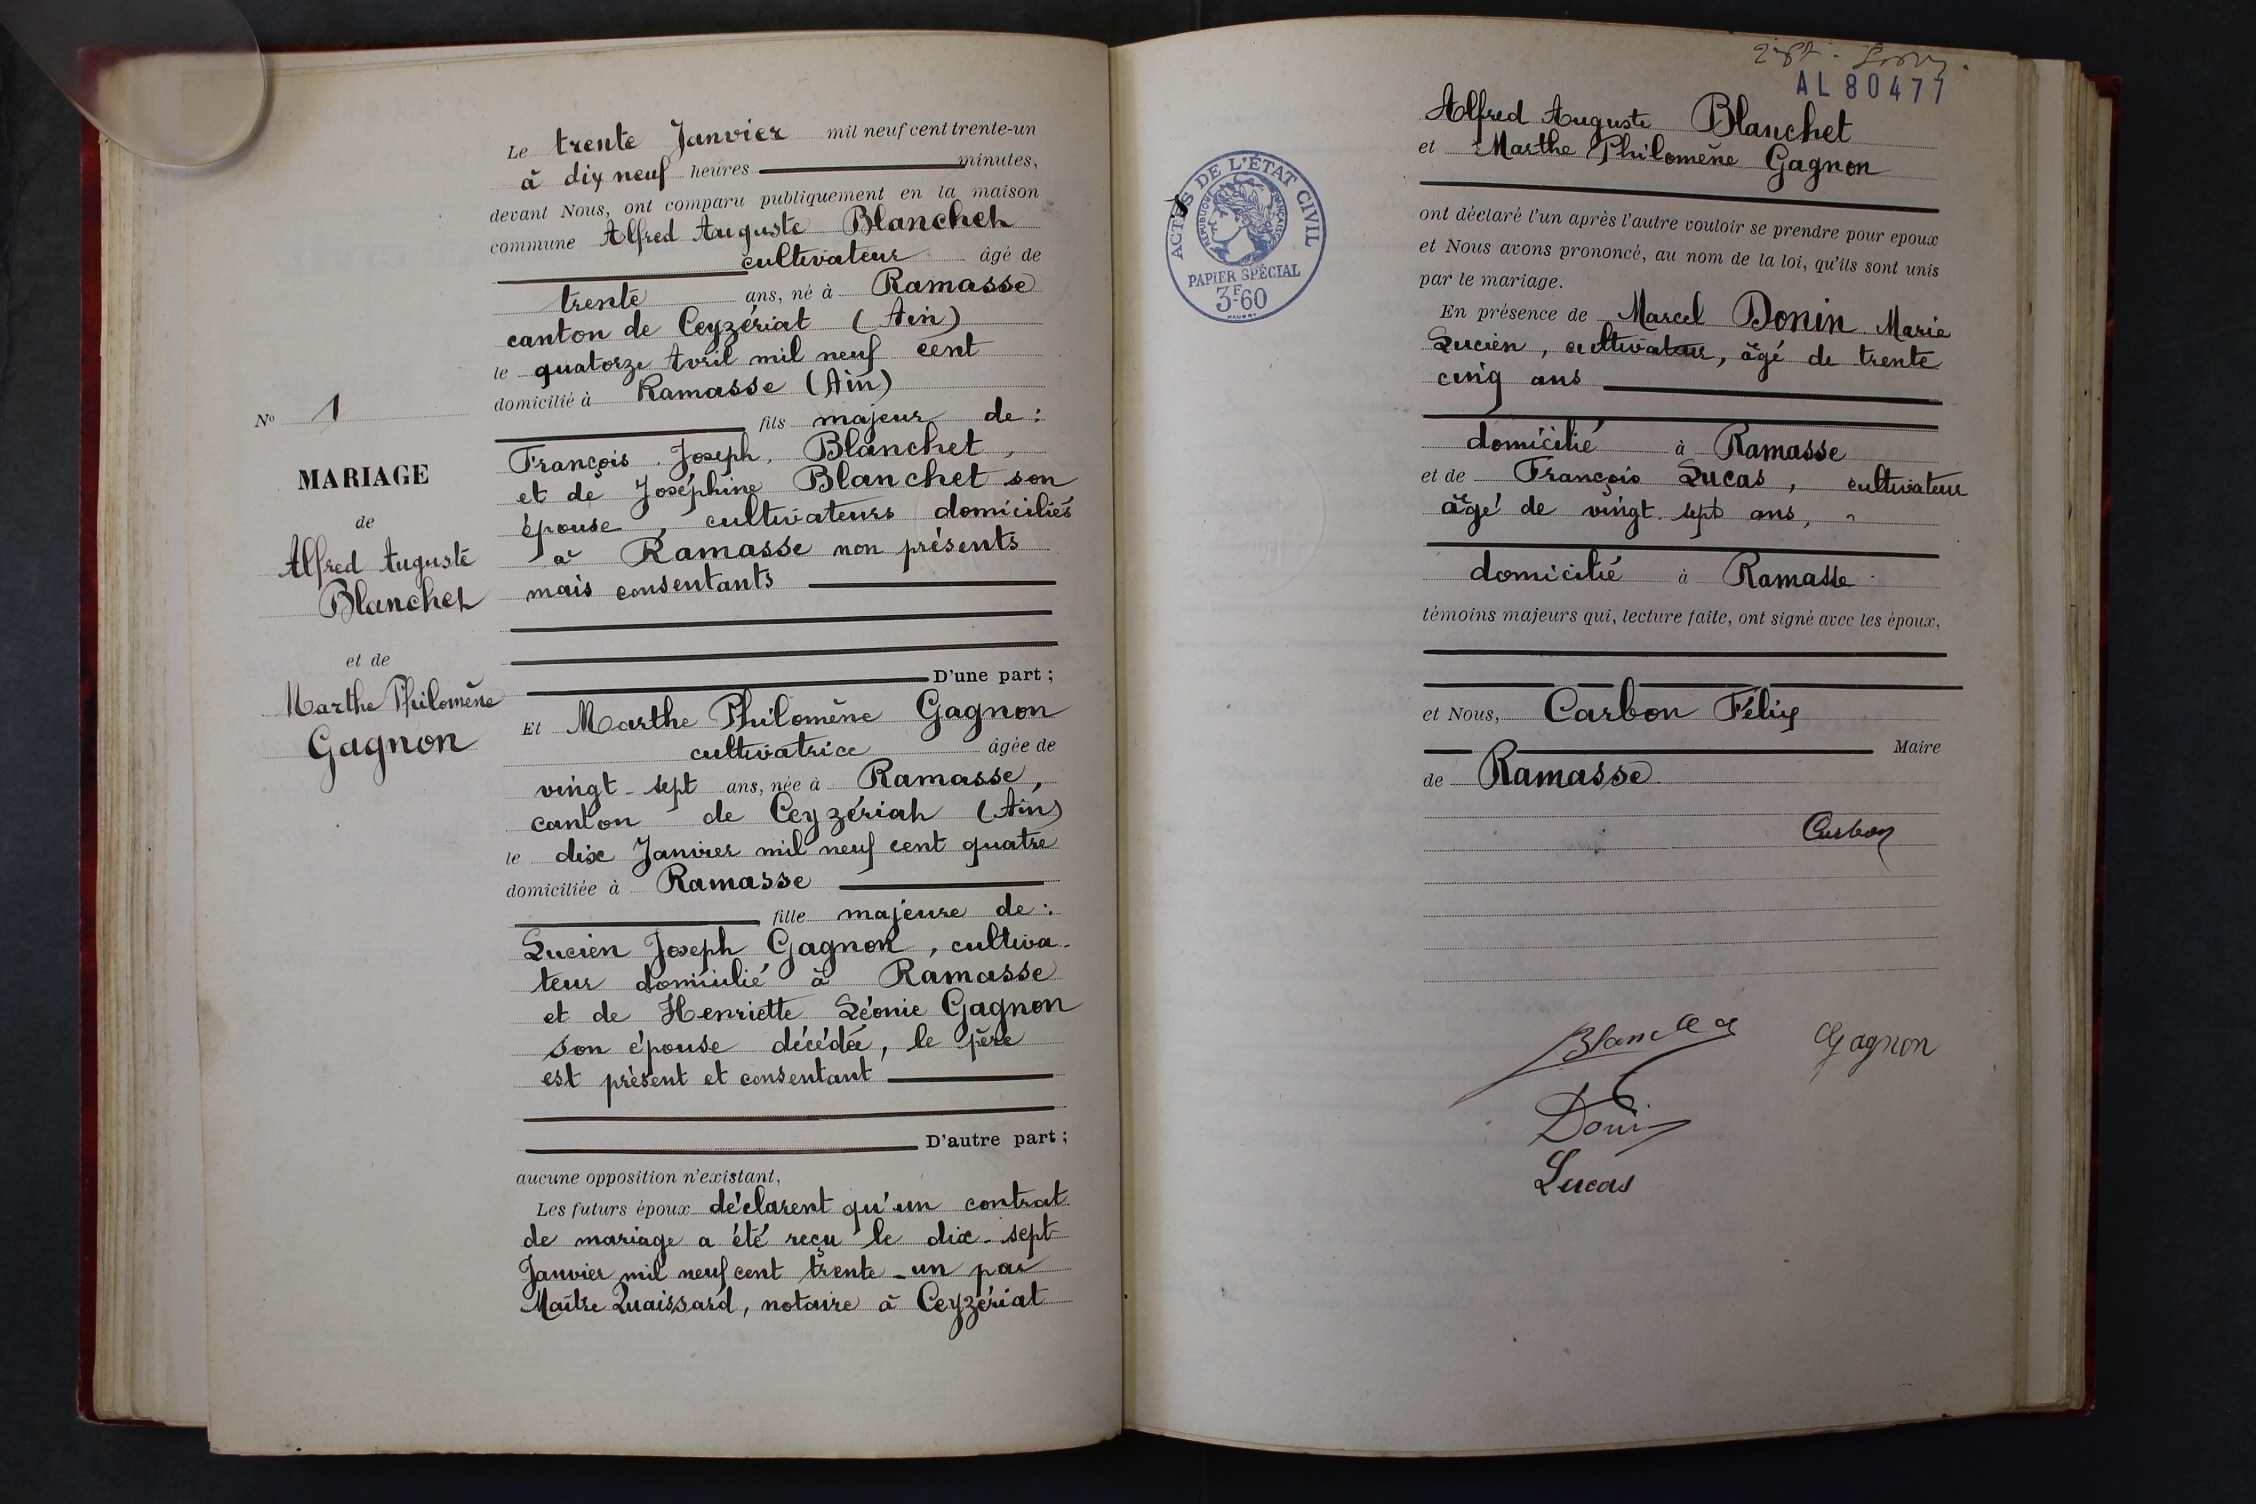 Le trente Janvier mil neuf cent trente-un
à dix neuf heures minutes,
devant Nous, ont comparu publiquement en la maison
commune Alfred Auguste Blanchet
cultivateur âgé de
trente ans, né à Ramasse
canton de Ceyzériat (Ain)
le quatorze Avril mil neuf cent
domicilié à Ramasse (Ain)
fils majeur de :
François Joseph Blanchet,
et de Joséphine Blanchet son
épouse, cultivateurs domiciliés
à Ramasse non présents
mais consentants
D'une part ;
Et Marthe Philomène Gagnon
cultivatrice âgée de
vingt-sept ans, née à Ramasse,
canton de Ceyzériat (Ain)
le dix Janvier mil neuf cent quatre
domiciliée à Ramasse
fille majeure de :
Lucien Joseph Gagnon, cultiva-
teur domicilié à Ramasse
et de Henriette Léonie Gagnon
son épouse décédée, le père
est présent et consentant
D'autre part ;
aucune opposition n'existant,
Les futurs époux déclarent qu'un contrat
de mariage a été reçu le dix-sept
Janvier mil neuf cent trente-un par
Maître Quaissard, notaire à Ceyzériat
No 1
MARIAGE
de
Alfred Auguste
Blanchet
et de
Marthe Philomène
Gagnon
AL80477
ACTES DE L'ÉTAT CIVIL
RÉPUBLIQUE FRANÇAISE
PAPIER SPÉCIAL
3F60
Alfred Auguste Blanchet
et Marthe Philomène Gagnon
ont déclaré l'un après l'autre vouloir se prendre pour époux
et Nous avons prononcé, au nom de la loi, qu'ils sont unis
par le mariage.
En présence de Marcel Donin Marie
Lucien, cultivateur, âgé de trente
cinq ans
domicilié à Ramasse
et de François Lucas, cultivateur
âgé de vingt-sept ans,
domicilié à Ramasse
témoins majeurs qui, lecture faite, ont signé avec les époux,
et Nous, Carbon Félix
Maire
de Ramasse
Carbon
Blanchet
Gagnon
Donin
Lucas